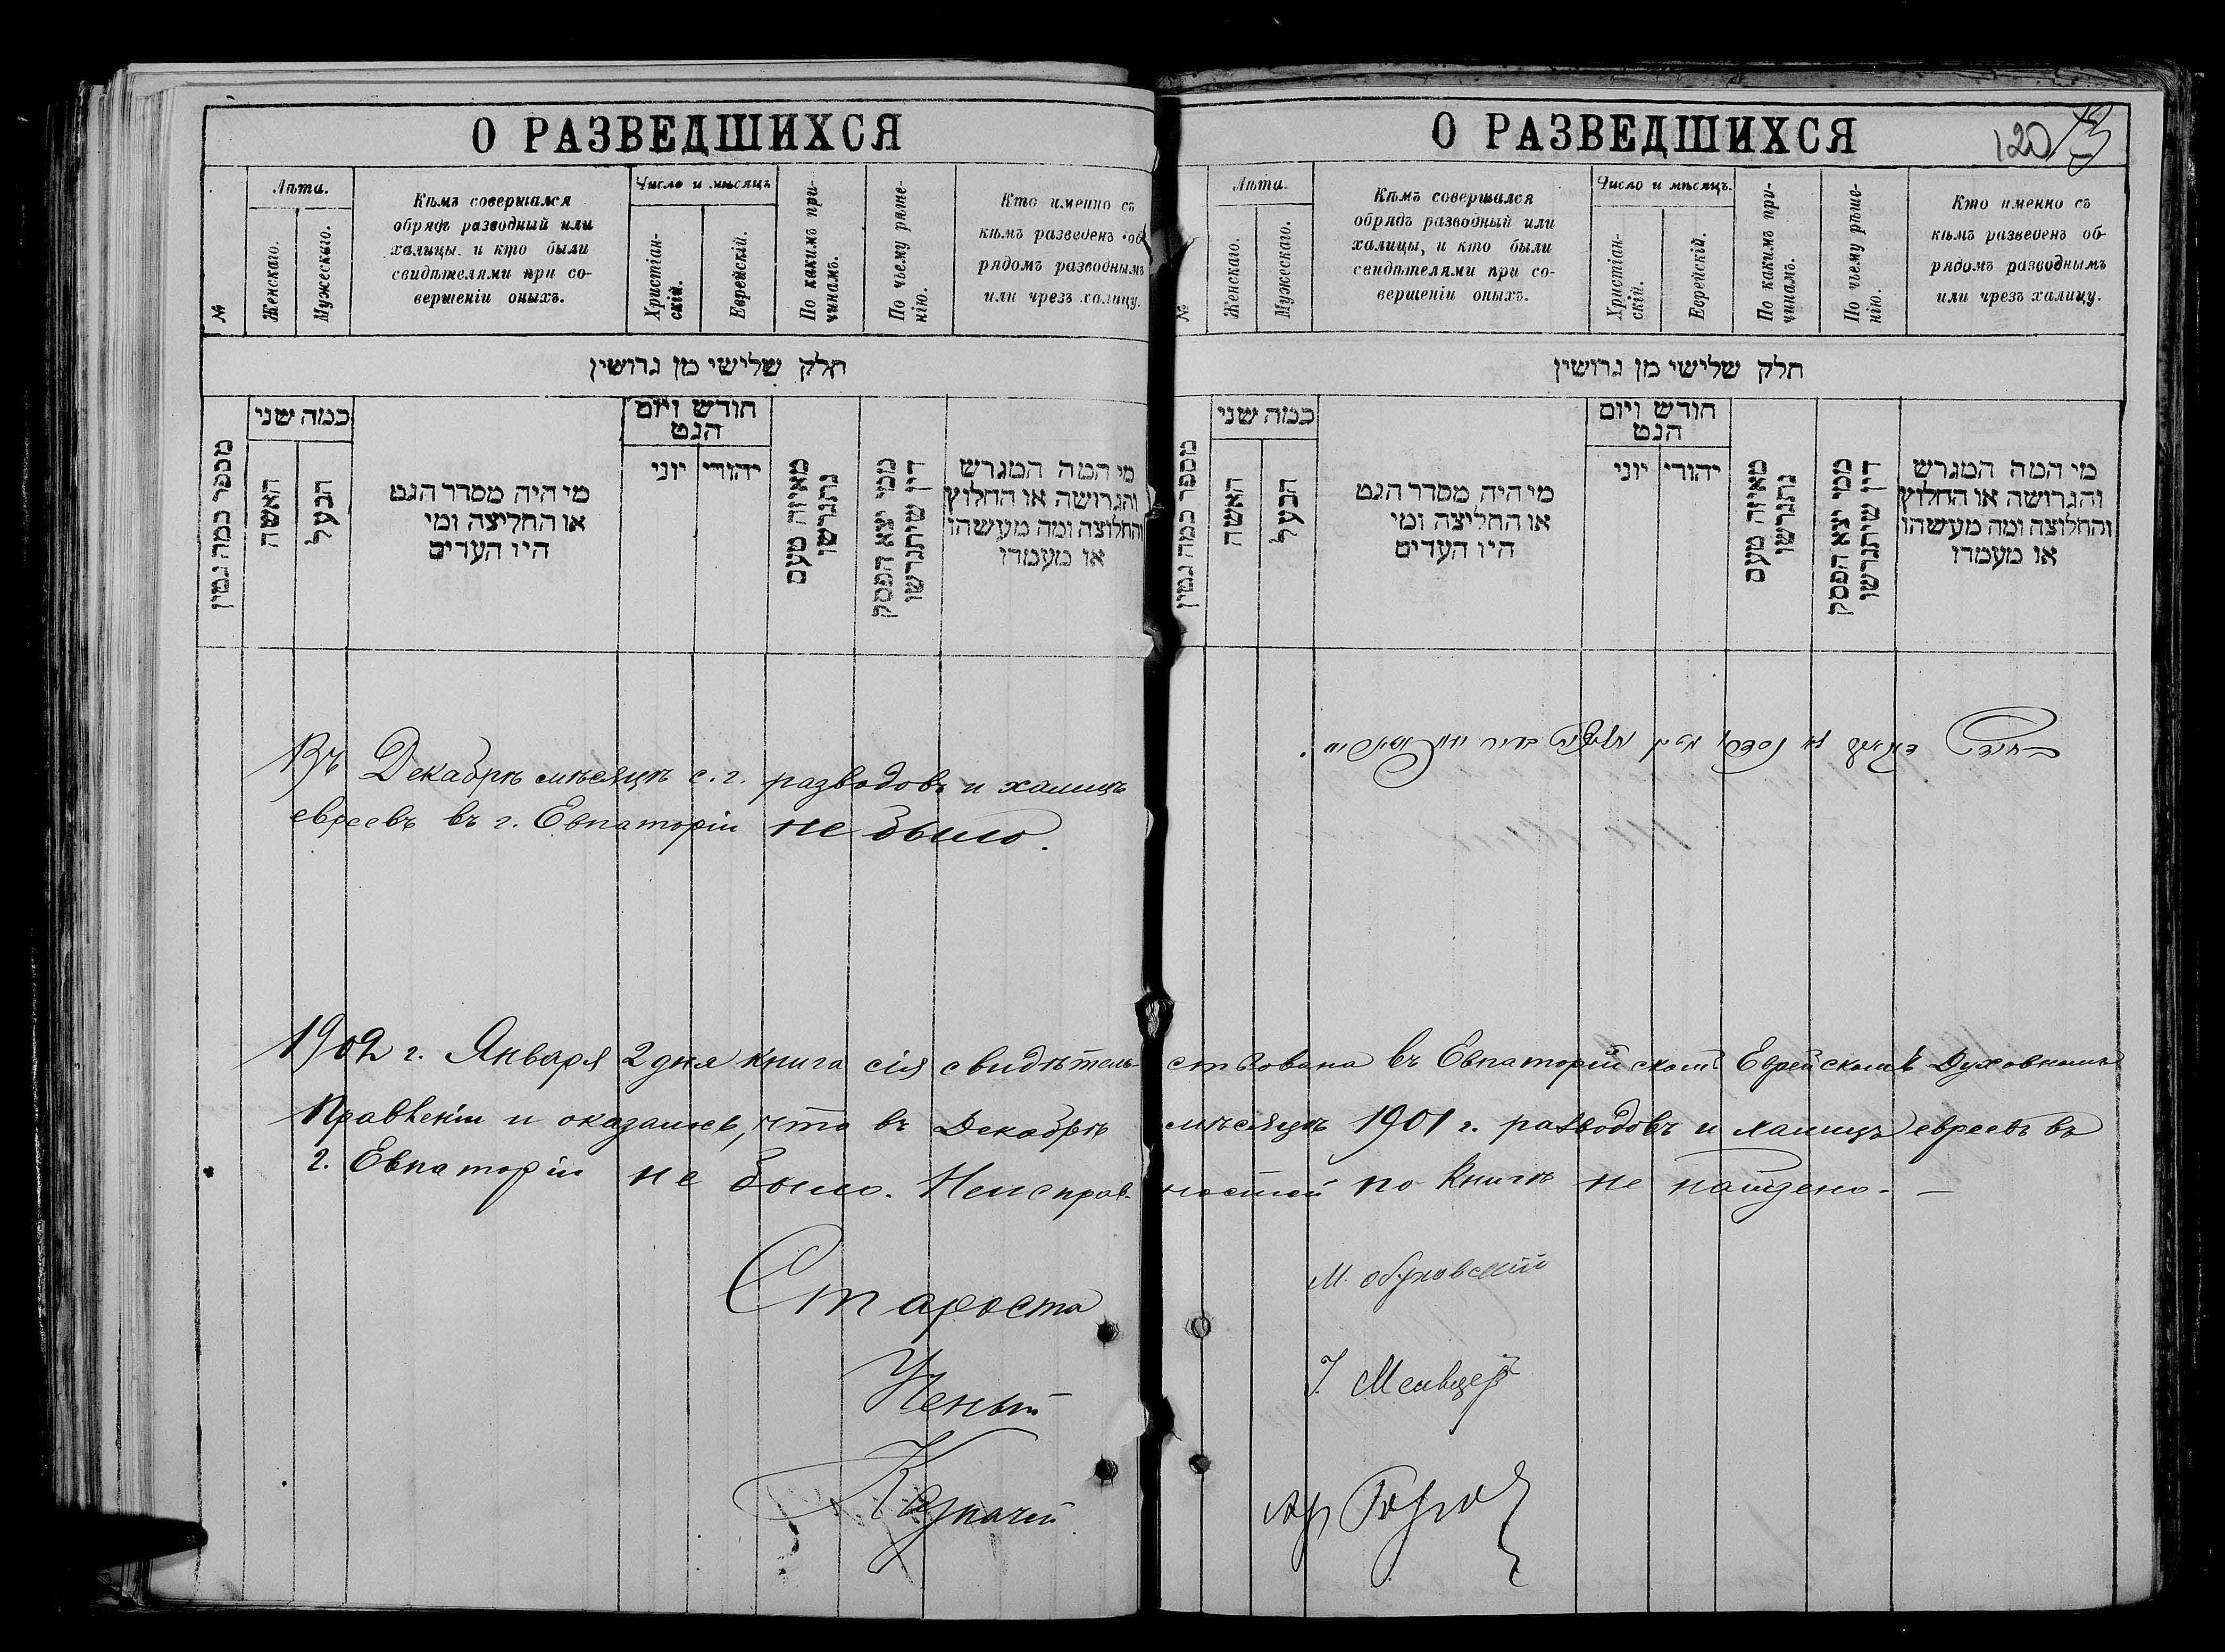 О РАЗВЕДШИХСЯ
№
Лѣта.
Женскаго.
Мужескаго.
Кѣмъ совершался
обрядъ разводный или
халицы. и кто были
свидѣтелями при со-
вершеніи оныхъ.
Число и мѣсяцъ
Христіан-
скій.
Еврейскій.
По какимъ при-
чинамъ.
По чьему рѣше-
нію.
Кто именно съ
кѣмъ разведенъ об
рядомъ разводнымъ
или чрезъ халицу.
חלק שלישי מן גרושין
מספר כמה גטין
כמה שני
האשה
הבעל
מי היה מסדר הגט
או החליצה ומי
היו העדים
חודש ויום
הגט
יוני
יהודי
מאיזה טעם
נתגרשו
ממי יצא הפסק
דין שיתגרשו
מי המה המגרש
והגרושה או החלוץ
והחלוצה ומה מעשהו
או מעמדו
Въ Декабрѣ мѣсяцѣ с. г. разводовъ и халицъ
евреевъ въ г. Евпаторіи не было.
О РАЗВЕДШИХСЯ
120
№
Лѣта.
Женскаго.
Мужескаго.
Кѣмъ совершался
обрядъ разводный или
халицы, и кто были
свидѣтелями при со-
вершеніи оныхъ.
Число и мѣсяцъ.
Христіан-
скій.
Еврейскій.
По какимъ при-
чинамъ.
По чьему рѣше-
нію.
Кто именно съ
кѣмъ разведенъ об-
рядомъ разводнымъ
или чрезъ халицу.
חלק שלישי מן גרושין
מספר כמה גטין
כמה שני
האשה
הבעל
מי היה מסדר הגט
או החליצה ומי
היו העדים
חודש ויום
הגט
יוני
יהודי
מאיזה טעם
נתגרשו
ממי יצא הפסק
דין שיתגרשו
מי המה המגרש
והגרושה או החלוץ
והחלוצה ומה מעשהו
או מעמדו
1902 г. Января 2 дня книга сія свидѣтель-ствована въ Евпаторійскомъ Еврейскомъ Духовномъ
Правленіи и оказалось, что въ Декабрѣ мѣсяцѣ 1901 г. разводовъ и халицъ евреевъ въ
г. Евпаторіи не было. Неисправ-ностей по книгѣ не найдено. —
Староста М. Обуховскій
Ученый
Казначей